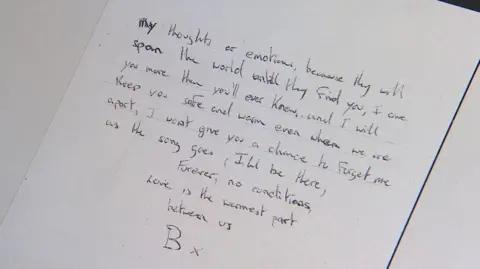 my thoughts or emotions, because they will
span the world untill they find you, I owe
you more than you'll ever know, and I will
keep you safe and warm even when we are
apart, I wont give you a chance to forget me
as the song goes, I'll be there,
Forever, no conditions,
Love is the warmest part
between us
B x